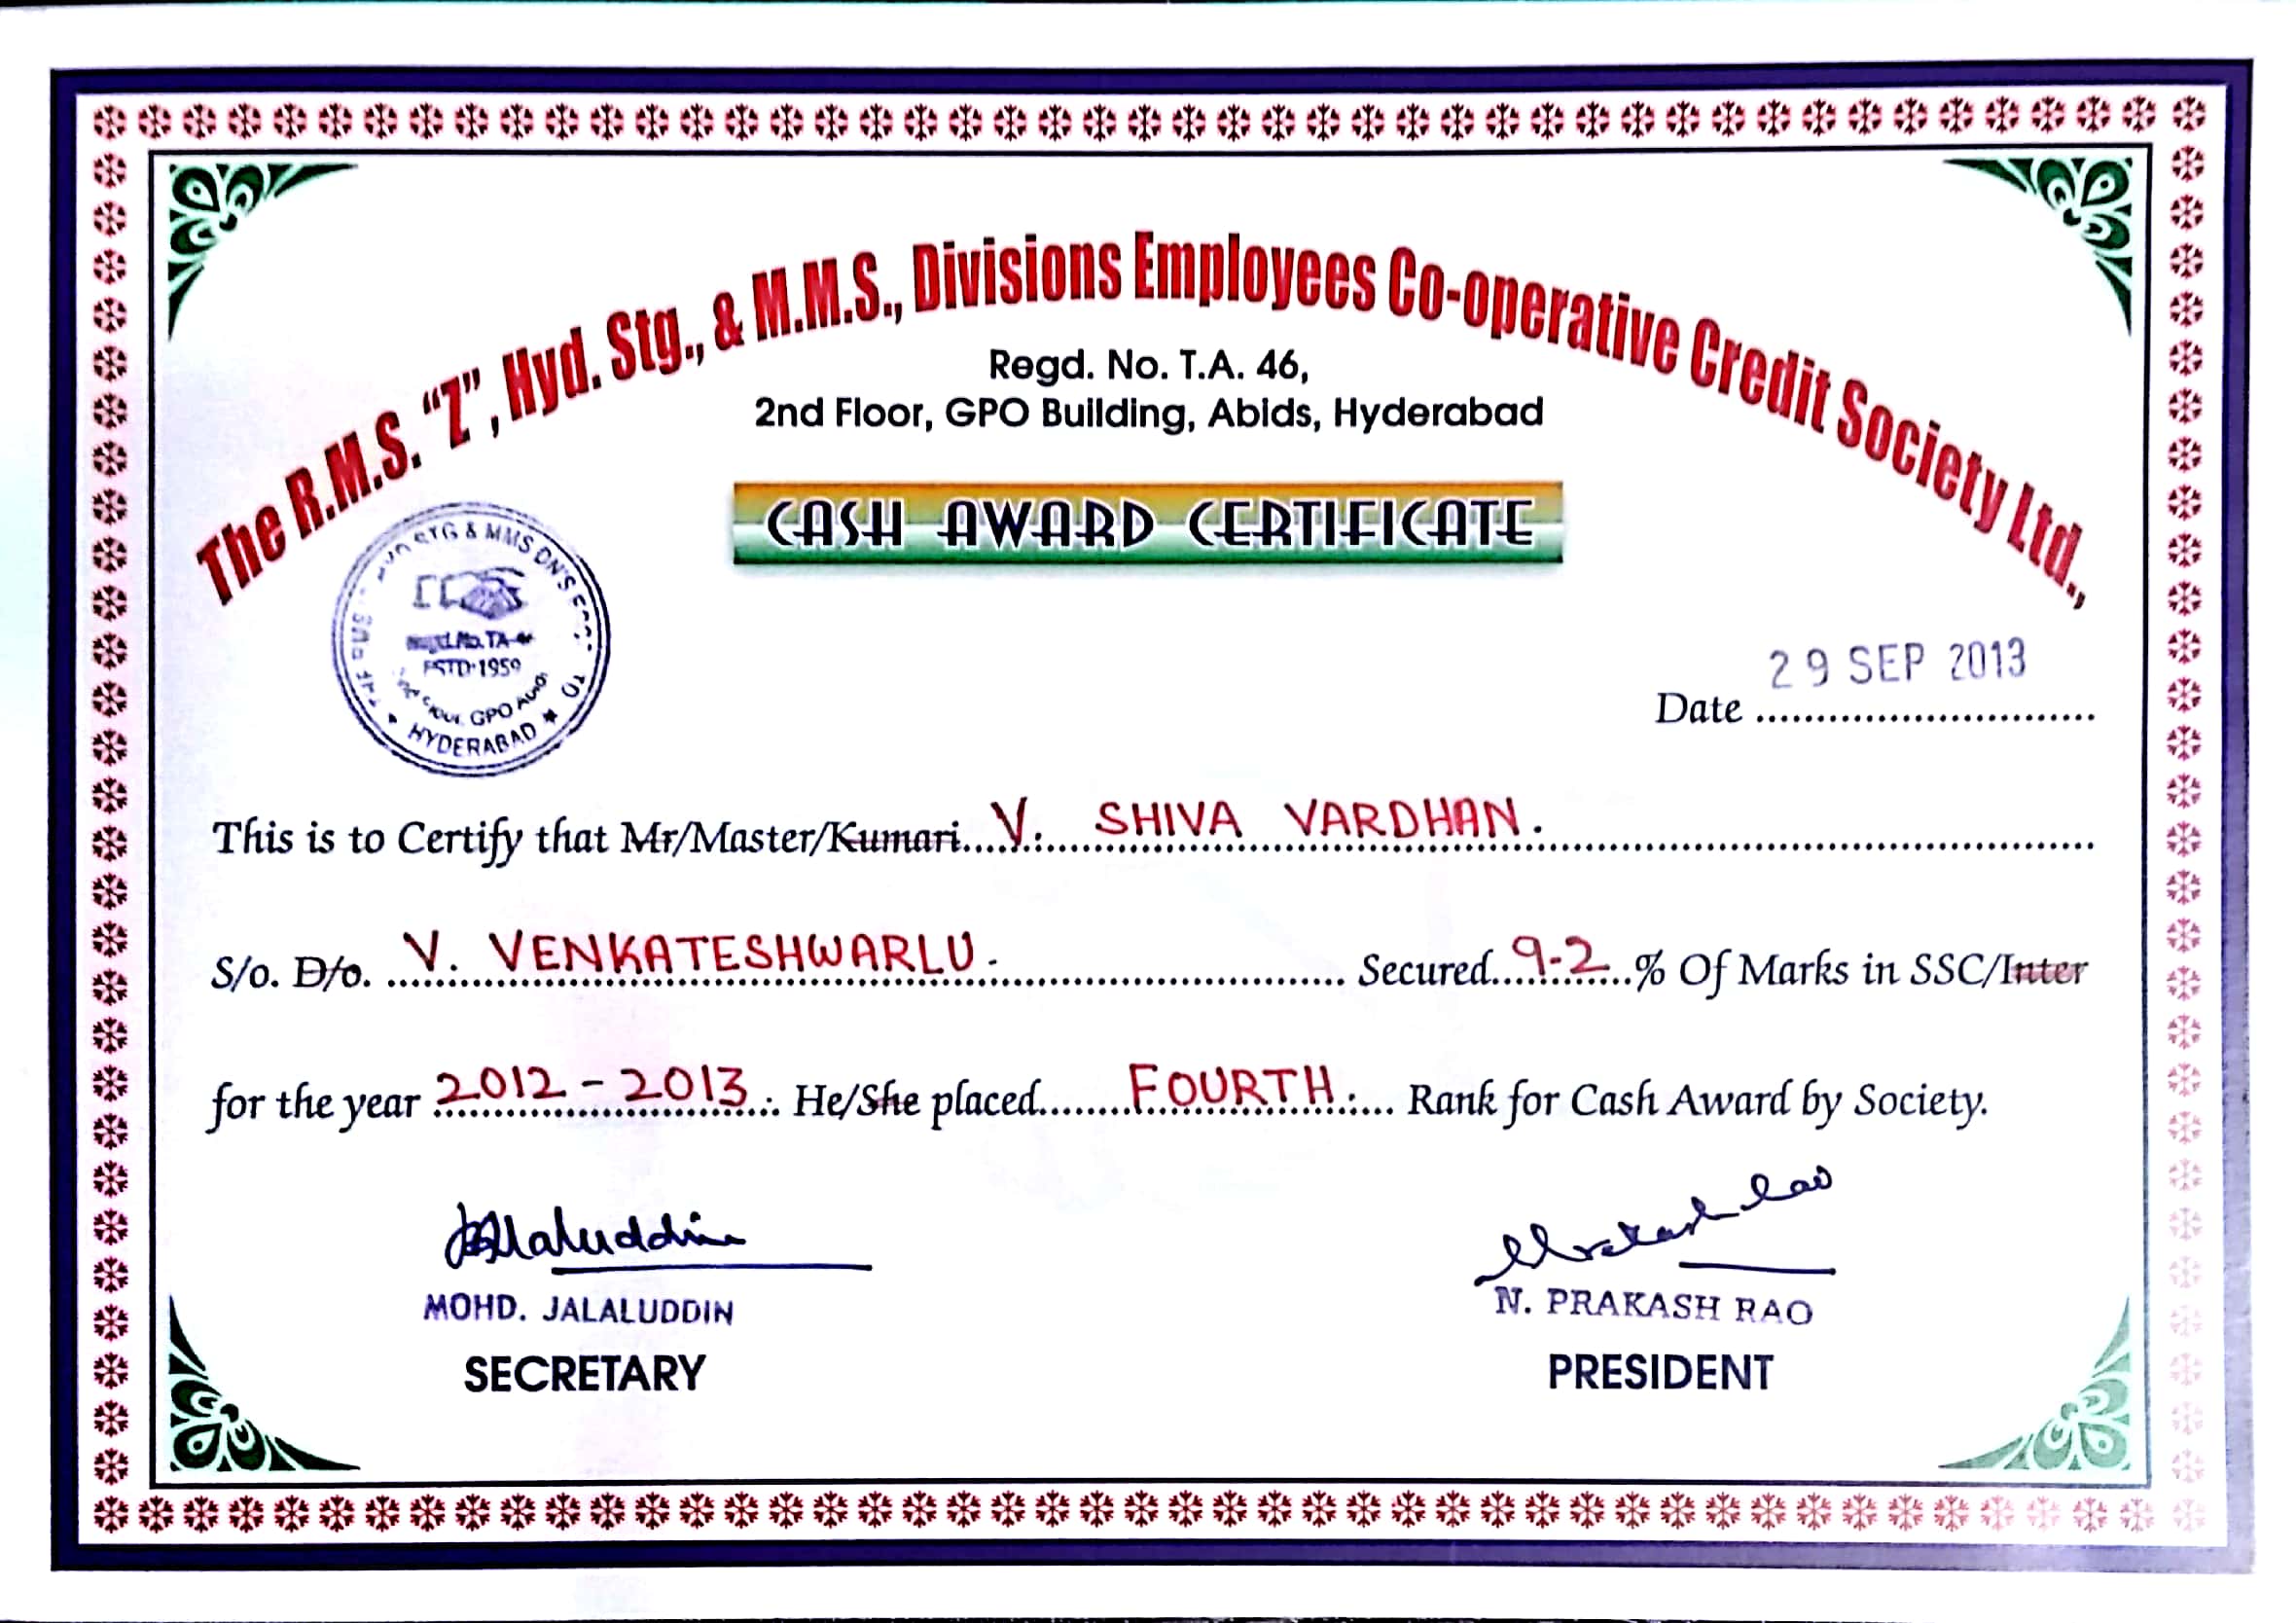 The R.M.S. "Z", Hyd. Stg., & M.M.S., Divisions Employees Co-operative Credit Society Ltd.,
Regd. No. T.A. 46,
2nd Floor, GPO Building, Abids, Hyderabad
CASH AWARD CERTIFICATE
STG & MMS DN'S
ESTD-1959
GPO
HYDERABAD
29 SEP 2013
Date
This is to Certify that Mr/Master/Kumari V. SHIVA VARDHAN.
S/o. D/o. V. VENKATESHWARLU. Secured 9-2 % Of Marks in SSC/Inter
for the year 2012 - 2013. He/She placed FOURTH. Rank for Cash Award by Society.
Jalaluddin
MOHD. JALALUDDIN
SECRETARY
N. PRAKASH RAO
PRESIDENT